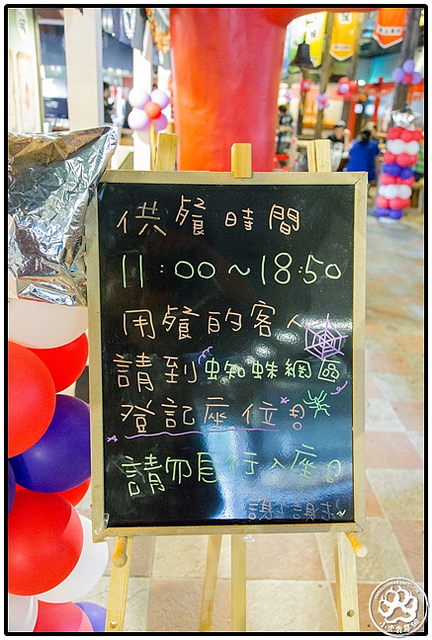 供餐時間
11:00~18:50
用餐的客人
請到蜘蛛網區
登記座位!
請勿自行入座!
謝謝~